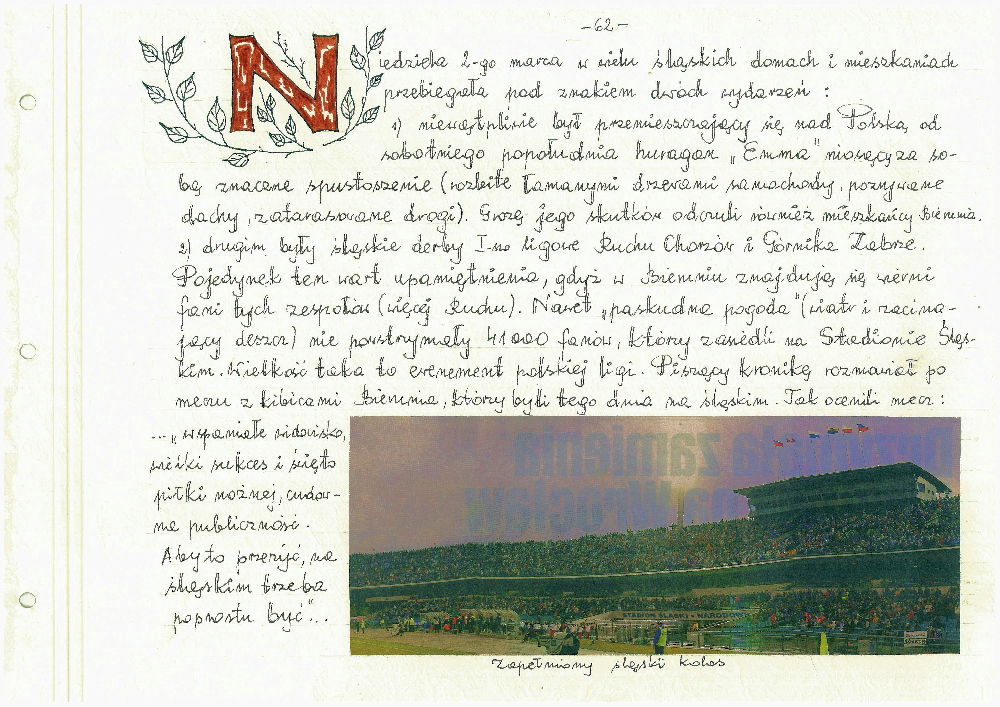 -62-
Niedziela 2-go marca w wielu śląskich domach i mieszkaniach
przebiegała pod znakiem dwóch wydarzeń :
1) niewątpliwie był przemieszczający się nad Polską od
sobotniego popołudnia huragan „Emma" niosący za so-
bą znaczne spustoszenie (rozbite łamanymi drzewami samochody, pozrywane
dachy, zatarasowane drogi). Grozę jego skutków odczuli również mieszkańcy Bierunia.
2) drugim były śląskie derby I-wo ligowe Ruchu Chorzów i Górnika Zabrze.
Pojedynek ten wart upamiętnienia, gdyż w Bieruniu znajdują się wierni
fani tych zespołów (więcej Ruchu). Nawet „paskudna pogoda" (wiatr i zacina-
jący deszcz) nie powstrzymały 41000 fanów, którzy zasiedli na Stadionie Śląs-
kim. Wielkość taka to evenement polskiej ligi. Piszący kronikę rozmawiał po
meczu z kibicami Bierunia, którzy byli tego dnia na śląskim. Tak ocenili mecz :
... „wspaniałe widowisko,
wielki sukces i święto
piłki nożnej, cudow-
na publiczność.
Aby to przeżyć, na
śląskim trzeba
poprostu być"...
zamienia
na Wrocław
STADION ŚLĄSKI
Zapełniony śląski kolos